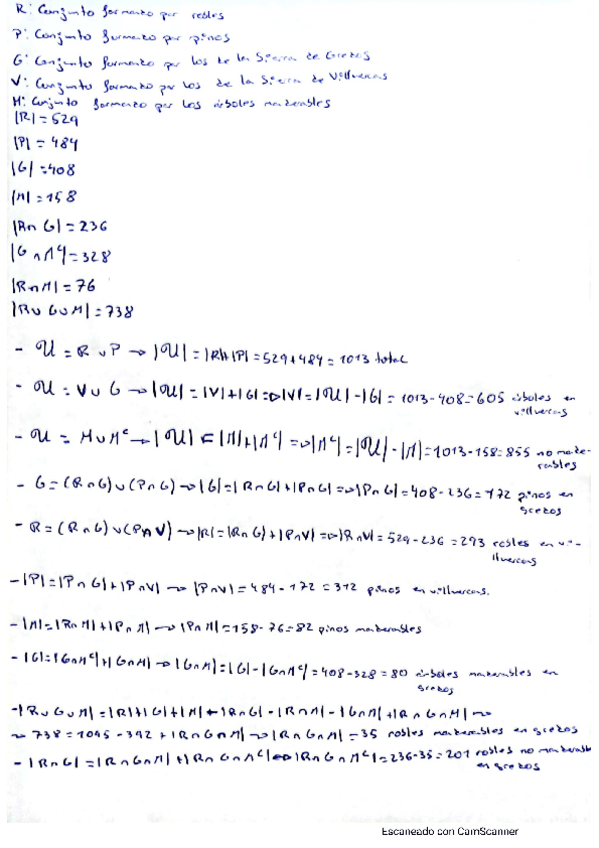 R: Conjunto formado por robles
P: Conjunto formado por pinos
G: Conjunto formado por los de la Sierra de Gredos
V: Conjunto formado por los de la Sierra de Villuercas
M: Conjunto formado por los árboles maderables
|R|=529
|P|=484
|G|=408
|M|=158
|R∩G|=236
|G∩Mᶜ|=328
|R∩M|=76
|R∪G∪M|=738
- U = R∪P → |U|=|R|+|P|=529+484=1013 total
- U = V∪G → |U|=|V|+|G| ⇒ |V|=|U|-|G|=1013-408=605 árboles en
villuercas
- U = M∪Mᶜ → |U|=|M|+|Mᶜ| ⇒ |Mᶜ|=|U|-|M|=1013-158=855 no made-
rables
- G=(R∩G)∪(P∩G) → |G|=|R∩G|+|P∩G| ⇒ |P∩G|=408-236=172 pinos en
gredos
- R=(R∩G)∪(P∩V) → |R|=|R∩G|+|P∩V| ⇒ |R∩V|=529-236=293 robles en vi-
lluercas
- |P|=|P∩G|+|P∩V| → |P∩V|=484-172=312 pinos en villuercas.
- |M|=|R∩M|+|P∩M| → |P∩M|=158-76=82 pinos maderables
- |G|=|G∩Mᶜ|+|G∩M| → |G∩M|=|G|-|G∩Mᶜ|=408-328=80 árboles maderables en
gredos
- |R∪G∪M|=|R|+|G|+|M|-|R∩G|-|R∩M|-|G∩M|+|R∩G∩M| →
→ 738=1095-392+|R∩G∩M| → |R∩G∩M|=35 robles maderables en gredos
- |R∩G|=|R∩G∩M|+|R∩G∩Mᶜ| ⇔ |R∩G∩Mᶜ|=236-35=201 robles no maderables
en gredos
Escaneado con CamScanner